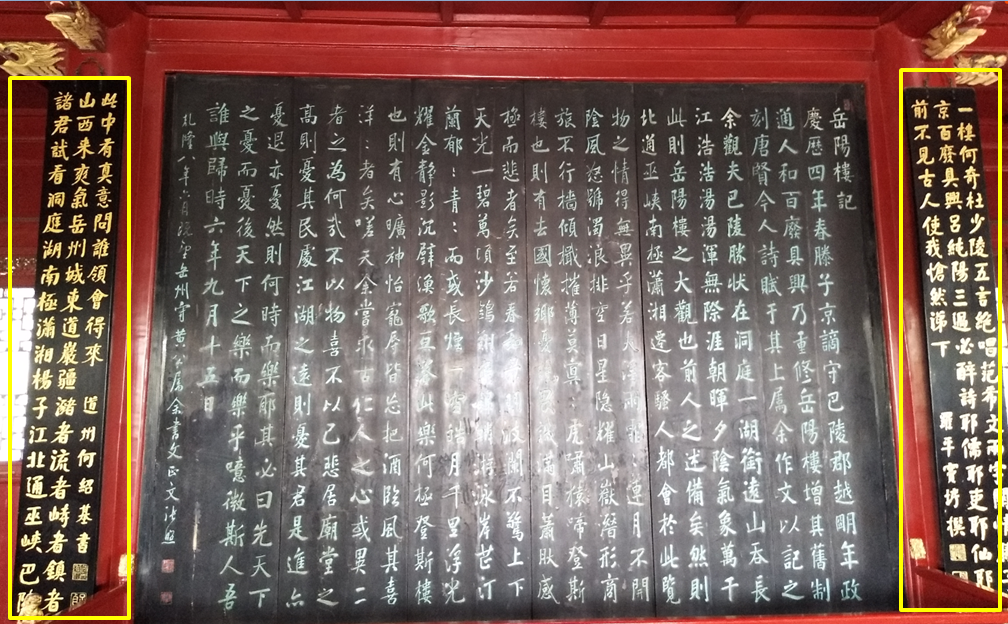 一樓何奇杜少陵五言絕唱范希文兩字
京百廢具興呂純陽三過必醉詩耶儒耶吏耶仙耶
前不見古人使我愴然涕下
羅平竇垿撰
岳陽樓記
慶歷四年春滕子京謫守巴陵郡越明年政
通人和百廢具興乃重修岳陽樓增其舊制
刻唐賢今人詩賦于其上属余作文以記之
余觀夫巴陵勝狀在洞庭一湖銜遠山吞長
江浩浩湯湯渾無際涯朝暉夕陰氣象萬千
此則岳陽樓之大觀也前人之述備矣然則
北通巫峽南極瀟湘遷客騷人都會於此覽
物之情得無異乎若夫淫雨霏:連月不開
陰風怒號濁浪排空日星隐耀山嶽潛形商
旅不行檣傾檝摧薄莫冥:虎嘯猿啼登斯
樓也則有去國懷鄉憂讒畏譏滿目蕭然感
極而悲者矣至若春和景明波瀾不驚上下
天光一碧萬頃沙鷗翔集錦鱗游泳岸芷汀
蘭郁:青:而或長煙一空皓月千里浮光
耀金靜影沉璧漁歌互答此樂何極登斯樓
也則有心曠神怡寵辱皆忘把酒臨風其喜
洋:者矣嗟夫余嘗求古仁人之心或異二
者之為何哉不以物喜不以己悲居廟堂之
高則憂其民處江湖之遠則憂其君是進亦
憂退亦憂然則何時而樂耶其必曰先天下
之憂而憂後天下之樂而樂乎噫微斯人吾
誰與歸時六年九月十五日
乹隆八年六月既望岳州守黄公属余書文正文張照
此中有真意問誰領會得來
道州何紹基書
山西来爽氣岳州城東道巖疆瀦者流者峙者鎮者
諸君試看洞庭湖南極瀟湘楊子江北通巫峽巴陵